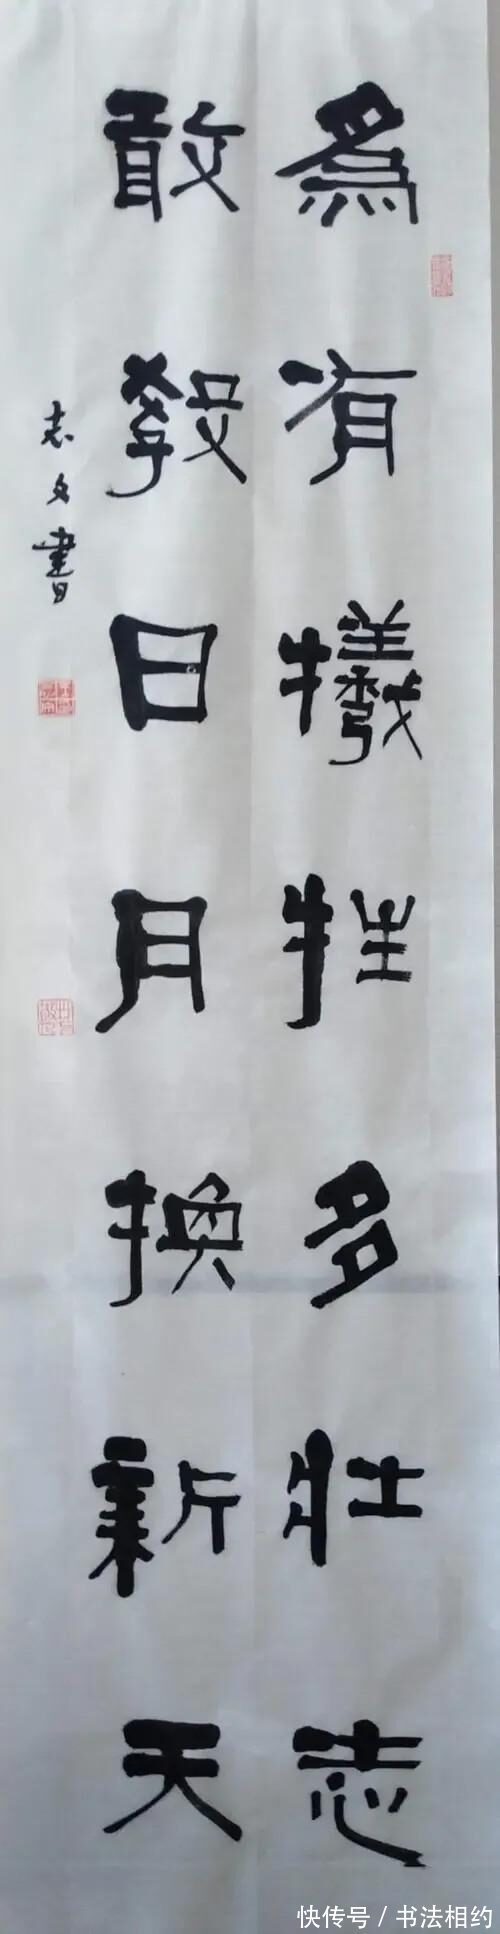 為有犧牲多壯志
敢教日月換新天
志文書
快传号／书法相约